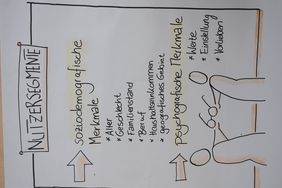 NUTZERSEGMENTE
soziodemografische
Merkmale
* Alter
* Geschlecht
* Familienstand
* Beruf
* Haushaltseinkommen
* geografisches Gebiet
psychografische Merkmale
* Werte
* Einstellung
* Vorlieben